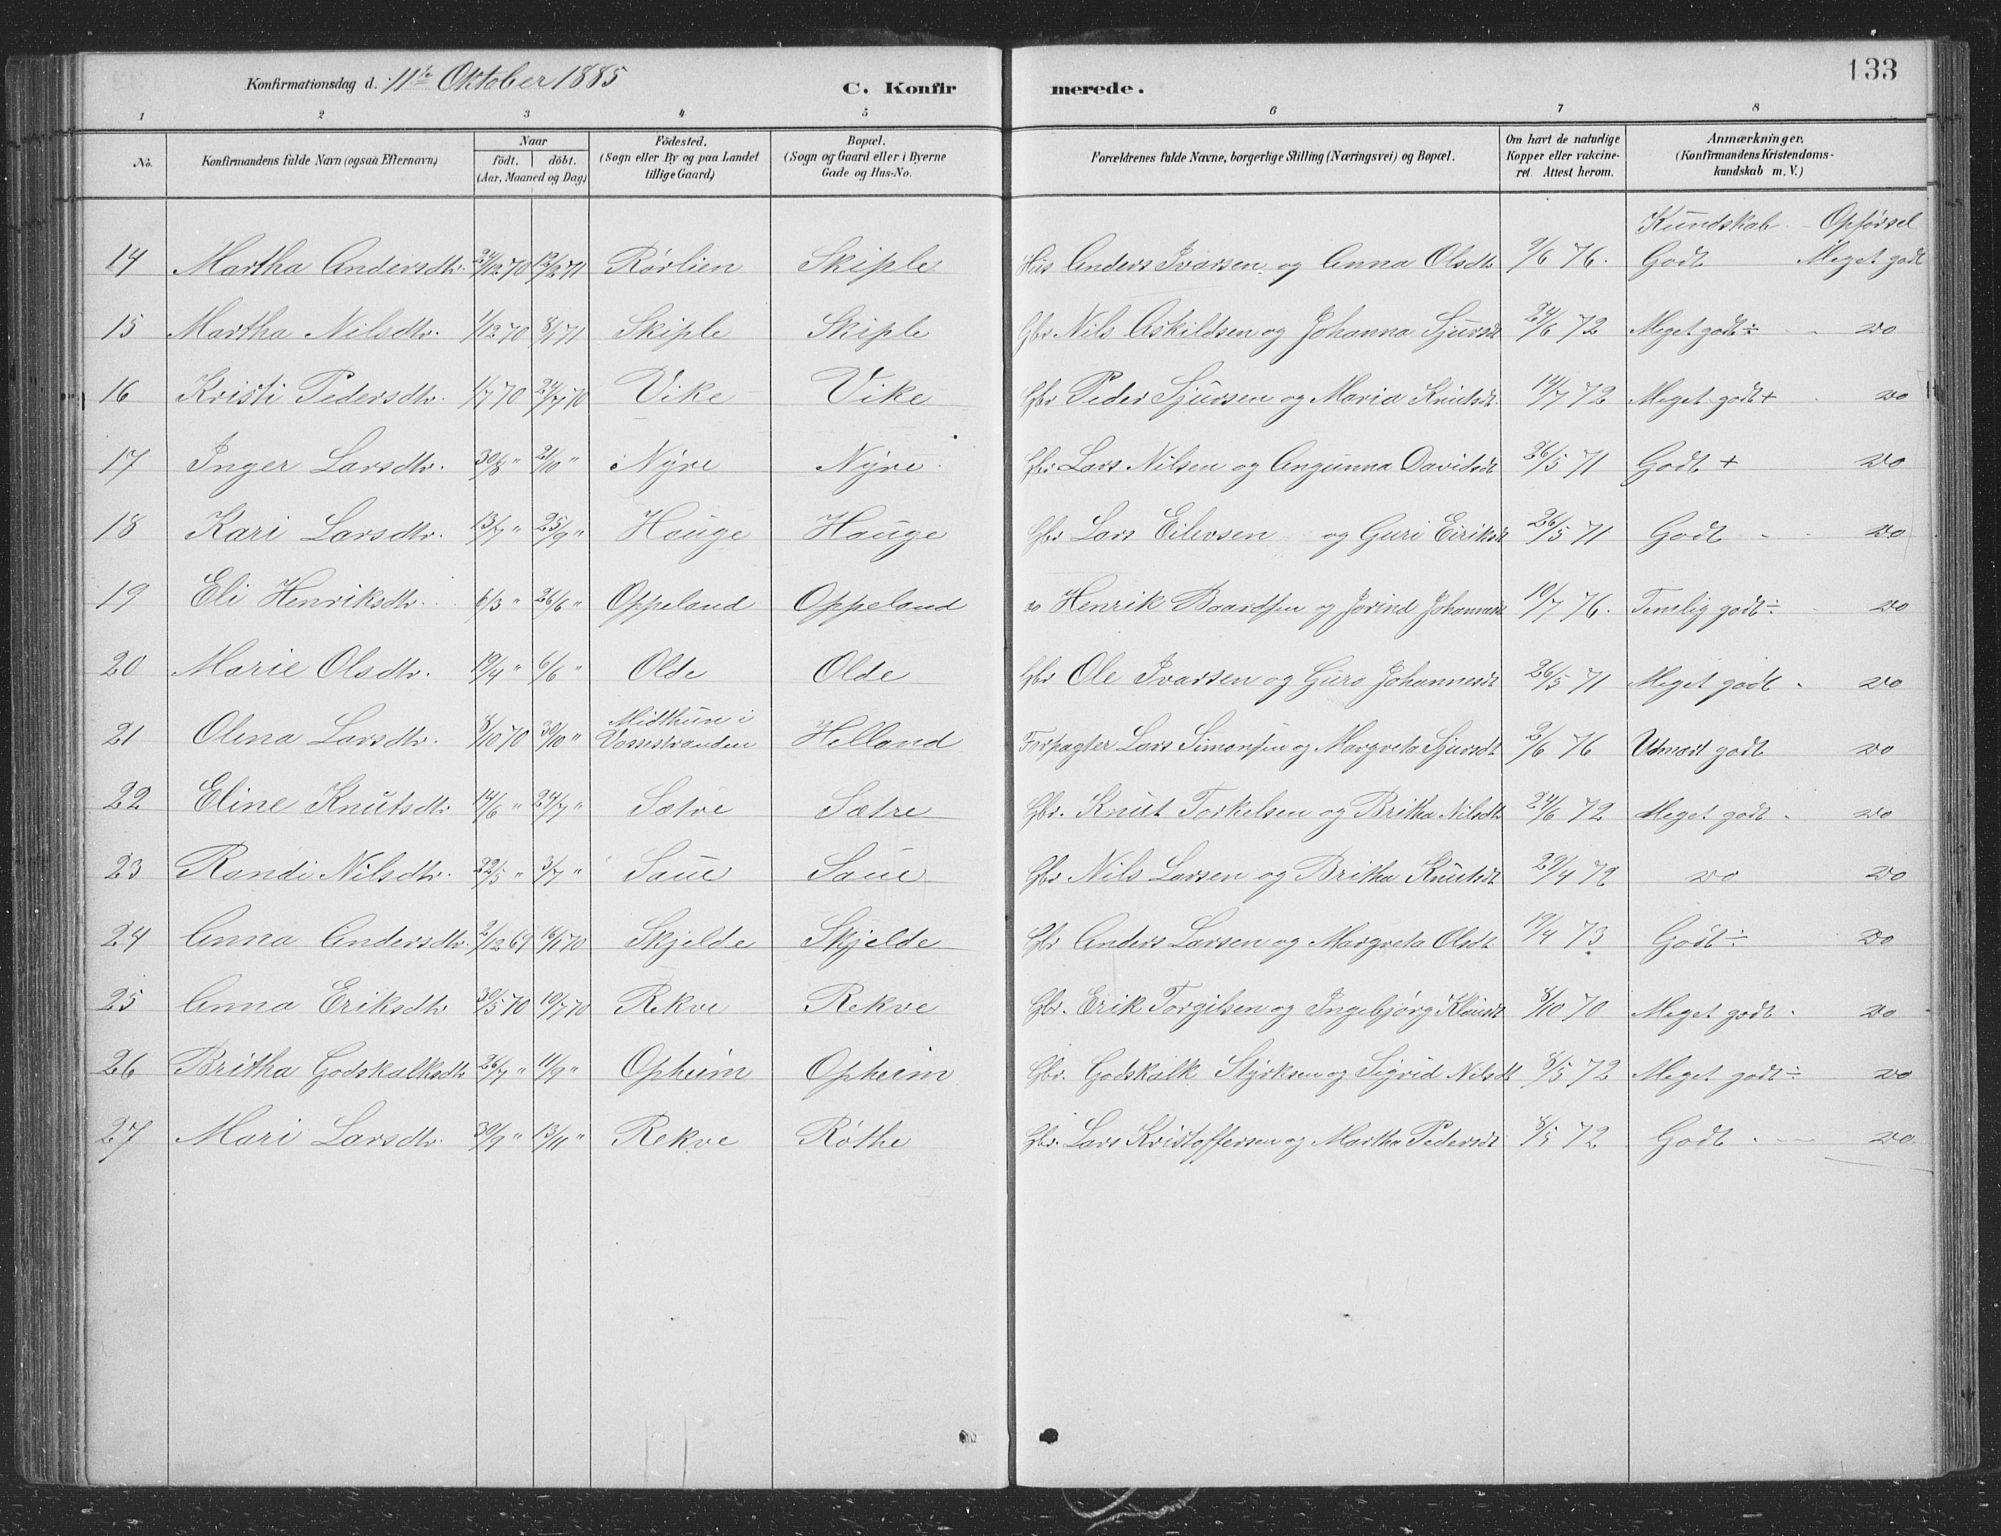 133
Konfirmationsdag d. 11te Oktober 1885 C. Konfirmerede.
1 2 3 4 5 6 7 8
No. Konfirmandens fulde Navn (ogsaa Efternavn) Naar födt. döbt. (Aar, Maaned og Dag) Födested. (Sogn eller By og paa Landet tillige Gaard) Bopæl. (Sogn og Gaard eller i Byerne Gade og Hus-No. Forældrenes fulde Navne, borgerlige Stilling (Næringsvei) og Bopæl. Om havt de naturlige Kopper eller vakcineret. Attest herom. Anmærkninger. (Konfirmandens Kristendomskundskab m. V.)
Kundskab - Opførsel
14 Martha Andersdtr. 24/12 70 12/2 71 Rørlien Skiple Hus Anders Ivarsen og Anna Olsdt 9/6 76. Godt Meget godt
15 Martha Nilsdtr. 1/12 70 8/1 71 Skiple Skiple Gbr Nils Askildsen og Johanna Sjursdt 24/6 72 Meget godt ÷ do
16 Kristi Pedersdtr. 1/7 70 24/7 70 Vike Vike Gbr Peder Sjursen og Maria Knutsdt 14/7 72 Meget godt + do
17 Inger Larsdtr. 30/8 " 21/10 " Nyre Nyre Gbr Lars Nilsen og Angunna Davidsdt 26/5 71 Godt + do
18 Kari Larsdtr. 13/7 " 25/9 " Hauge Hauge Gbr Lars Eilevsen og Guri Eiriksdt 26/5 71 Godt do
19 Eli Henriksdtr. 6/3 " 26/6 " Oppeland Oppeland do Henrik Baardsen og Jorind Johannesdt 10/7 76. Temlig godt ÷ do
20 Marie Olsdtr. 19/4 " 6/6 " Olde Olde Gbr Ole Ivarsen og Guro Johannesdt 26/5 71 Meget godt do
21 Olena Larsdtr. 8/10 70 30/10 " Midthun i Vossestranden Helland Forpagter Lars Simonsen og Margreta Sjursdt 2/6 76 Udmært godt do
22 Eline Knutsdtr 14/6 " 24/7 " Sætre Sætre Gbr. Knut Torkelsen og Britha Nilsdt 24/6 72 Meget godt do
23 Randi Nilsdtr. 22/5 " 3/7 " Saue Saue Gbr Nils Larsen og Britha Knutsdt 29/4 72 do do
24 Anna Andersdtr. 2/12 69 16/1 70 Skjelde Skjelde Gbr Anders Larsen og Margreta Olsdt 19/4 73 Godt ÷ do
25 Anna Eriksdtr 30/5 70 10/7 70 Rekve Rekve Gbr. Erik Torgilsen og Ingebjørg Klausdt 8/10 70 Meget godt do
26 Britha Godskalksdtr 26/7 " 11/9 " Opheim Opheim Gbr. Godskalk Styrksen og Sigrid Nilsdt 8/5 72 Meget godt ÷ do
27 Mari Larsdtr. 30/9 " 13/11 " Rekve Røthe Gbr. Lars Kristoffersen og Martha Pedersdt 8/5 72 Godt do